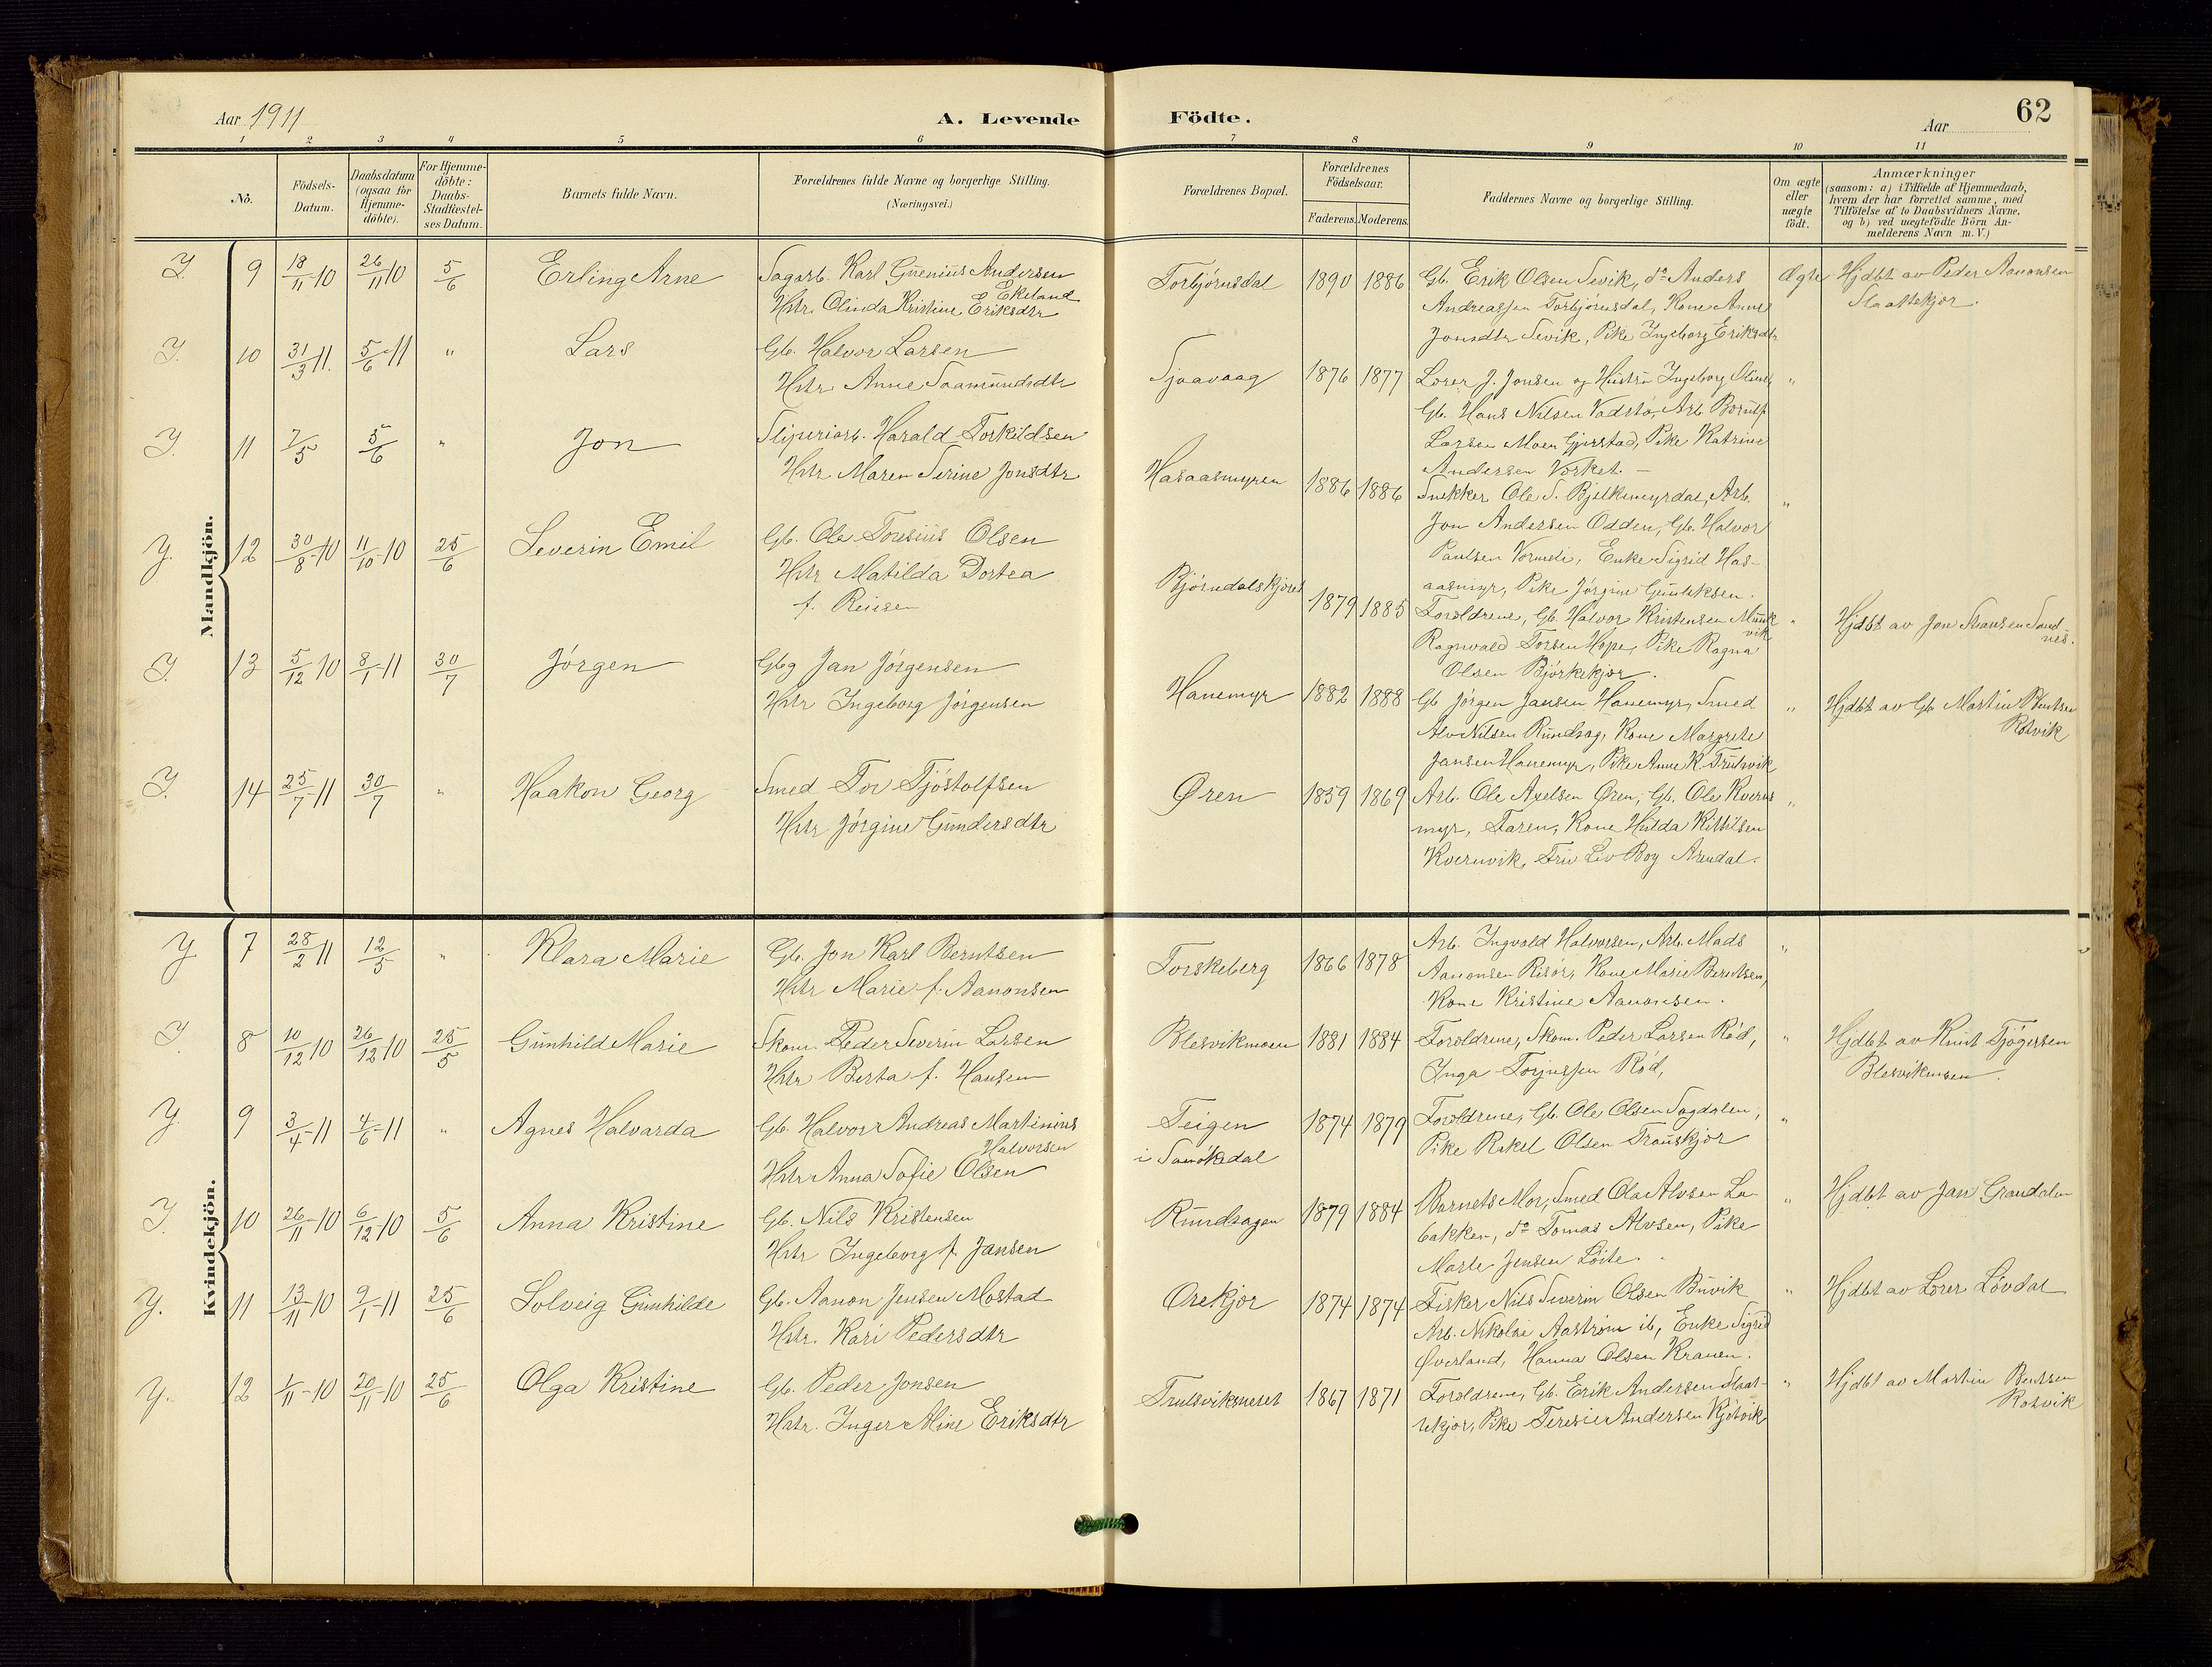 Aar 1911
A. Levende Födte.
Aar
62
1 2 3 4 5 6 7 8 9 10 11
Nö.
Födsels-Datum.
Daabsdatum (ogsaa for Hjemme-döbte).
For Hjemme-döbte: Daabs-Stadfæstel-ses Datum.
Barnets fulde Navn.
Forældrenes fulde Navne og borgerlige Stilling.
(Næringsvei.)
Forældrenes Bopæl.
Forældrenes Födselsaar.
Faderens. Moderens.
Faddernes Navne og borgerlige Stilling.
Om ægte eller uægte födt.
Anmærkninger
(saasom: a) i Tilfælde af Hjemmedaab,
hvem der har forrettet samme, med
Tilföielse af to Daabsvidners Navne,
og b) ved uægtefödte Börn An-
melderens Navn m. V.)
Mandkjön.
I. 9 18/11-10 26/11 10 5/6 Erling Arne
Sagarb. Karl Andersen
Ekeland
Hstr. Olinda Kristine Eriksdtr
Torbjörnsdal 1890 1886
Gb. Erik Olsen Sevik, do Anders
Andreassen Torbjörnsdal, Kone Anne
Jonsdtr Sevik, Pike Ingeborg Eriksdtr
Ægte
Hjdbt av Peder Aanonsen
Slaattekjær.
I. 10 31/3 11. 5/6-11 " Lars
Gb. Halvor Larsen
Hstr. Anne Saamundsdtr
Sjaavaag 1876 1877
Lærer J. Jonsen og Hustru Ingeborg
Gb. Hans Nilsen Vadstö, Arb.
Larsen Moen Gjerstad, Pike Katrine
Andersen Vorket. —
"
I. 11 7/5 5/6 " Jon
Sliperiarb. Harald Torkildsen
Hstr. Maren Serine Jonsdtr
Hasaasmyren 1886 1886
Snekker Ole S. Bjelkemyrdal, Arb.
Jon Andersen Odden, Gb. Halvor
Paulsen Vormeli, Enke Sigrid Has-
aasmyr, Pike Jörgine Gunleksen.
"
Y. 12 30/8-10 11/10-10 25/6 Severin Emil
Gb. Ole Olsen
Hstr Matilda Dortea
f. Reiersen
Björndalskjöret 1879 1885
Foreldrene, Gb. Halvor Kristensen Munk
vik
Ragnvald Torsen Hope, Pike Ragna
Olsen Björkekjær.
"
Hjdbt av Jon Sand
nes.
I. 13 5/12 10 8/1-11 30/7 Jörgen
Gbg Jan Jörgensen
Hstr Ingeborg Jörgensen
Hanemyr 1882 1888
Gb Jörgen Jansen Hanemyr, Smed
Alv Nilsen Rundsag, Kone Margrete
Jansen Hanemyr, Pike Anne K. Trulsvik
"
Hjdbt av Gb Martin Bentsen
Rosvik
I. 14 25/7-11 30/7 " Haakon Georg
Smed Tov Tjöstolfsen
Hstr Jörgine Gundersdtr
Øren 1859 1869
Arb. Ole Axelsen Øren, Gb. Ole Kverns
myr, Faren, Kone Hulda Kittilsen
Kvernvik, Fru Liv Boy Arendal.
"
Kvindekjön.
Y. 7 28/2 11 12/5 " Klara Marie
Gb. Jon Karl Berntsen
Hstr Marie f. Aanonsen
Torskeberg 1866 1878
Arb. Ingvald Halvorsen, Arb. Mads
Aanonsen Risör, Kone Marie Berntsen,
Kone Kristine Aanonsen.
"
I. 8 10/12 10 26/12 10 25/5 Gunhild Marie
Skom. Peder Severin Larsen
Hstr Berta f. Hansen
Blesvikmoen 1881 1884
Foreldrene, Skom. Peder Larsen Röd,
Inga Torjussen Röd,
"
Hjdbt av Knut Tjögersen
Blesvikmoen.
Y. 9 3/4-11 4/6-11 " Agnes Halvarda
Gb. Halvor Andreas Martinius
Halvorsen
Hstr Anna Sofie Olsen
Teigen
i Sanökedal
1874 1879
Foreldrene, Gb. Ole Olsen Sagdalen,
Pike Rakel Olsen Trauskjær
"
I. 10 26/11-10 6/12 10 5/6 Anna Kristine
Gb. Nils Kristensen
Hstr Ingeborg f. Jansen
Rundsagen 1879 1884
Barnets Mor, Smed Ola Alvsen Lø-
bakken, do Tomas Alvsen, Pike
Marte Jensen Löite.
"
Hjdbt av Jan Grandalen
Y. 11 13/11-10 9/1-11 25/6 Solveig Gunhilde
Gb. Aanon Jensen Mostad
Hstr. Kari Pedersdtr
Orekjær 1874 1874
Fisker Nils Severin Olsen Buvik
Arb. Nikolai Aaström ib, Enke Sigrid
Øverland, Hanna Olsen Kranen.
"
Hjdbt av Lærer Lövdal
Y. 12 1/11-10 20/11-10 25/6 Olga Kristine
Gb. Peder Jonsen
Hstr. Inger Aline Eriksdtr
Trulsvikneset 1867 1871
Foreldrene, Gb. Erik Andersen Slaat-
tekjær, Pike Teresie Andersen Kjelvik
"
Hjdbt av Martin Bentsen
Rosvik